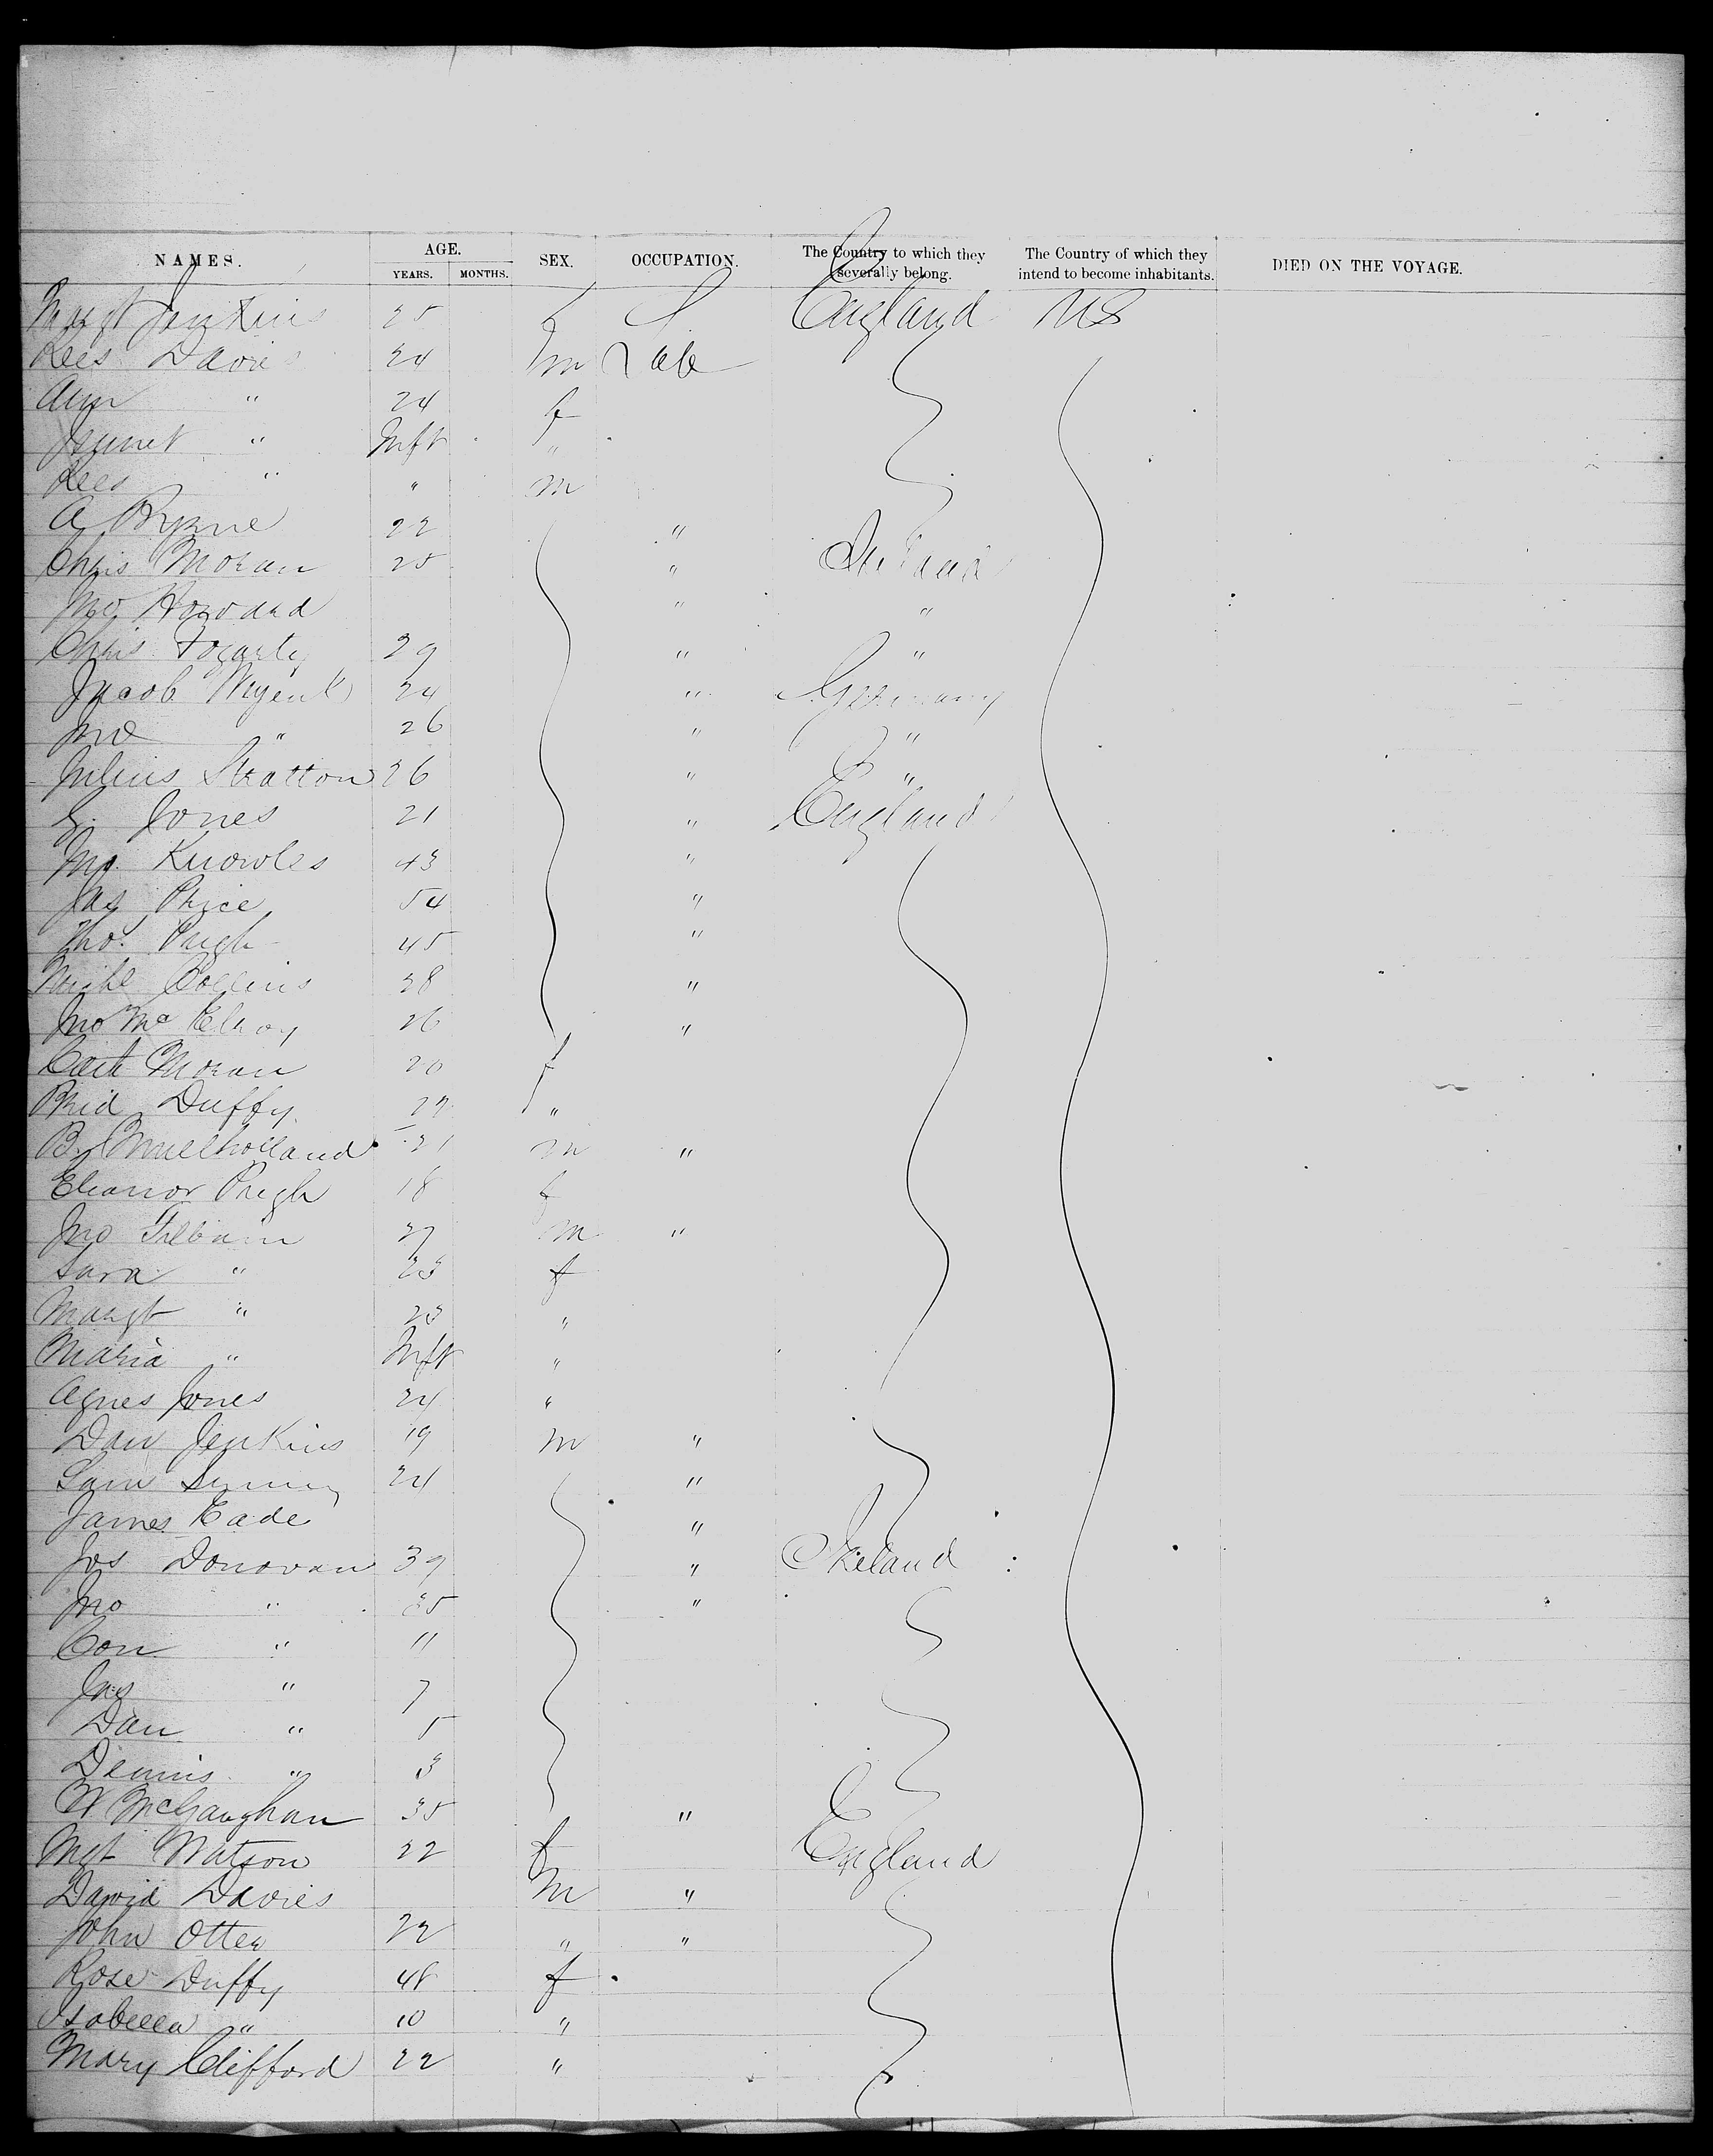 NAMES. AGE. SEX. OCCUPATION. The Country to which they severally belong. The Country of which they intend to become inhabitants. DIED ON THE VOYAGE.
YEARS. MONTHS.
Margt Jenkins 25 f England US
Rees Davies 24 m Lab
Ann " 24 f
" Inft "
Rees " " m
A Byrne 22 "
Chris Moran 25 " Ireland
Jno Howard " "
Chris Fogarty 29 " "
Jacob 24 " Germany
Jno " 26 " "
Julius Stratton 26 " "
G. Jones 21 " England
Jno. Knowles 43 "
Jas Price 54 "
Tho. Pugh 45 "
Michl Collins 28 "
Jno McElroy 26 "
Cath Moran 20 f
Brid Duffy 22 "
B. Mullholland 21 m "
Eleanor Pugh 18 f
Jno 27 m "
Sara " 23 f
Margt " 23 "
Maria " Inft "
Agnes Jones 24 "
Dan Jenkins 19 m "
Sam 24 "
James Eade "
Jos Donovan 39 " Ireland
Jno " 35 "
Con " 11
Jas " 7
Dan " 5
Dennis " 3
W McGaughan 35 "
Mgt Watson 22 f England
David Davies m "
John Otter 22 " "
Rose Duffy 48 f
Isabella " 10 "
Mary Clifford 22 "